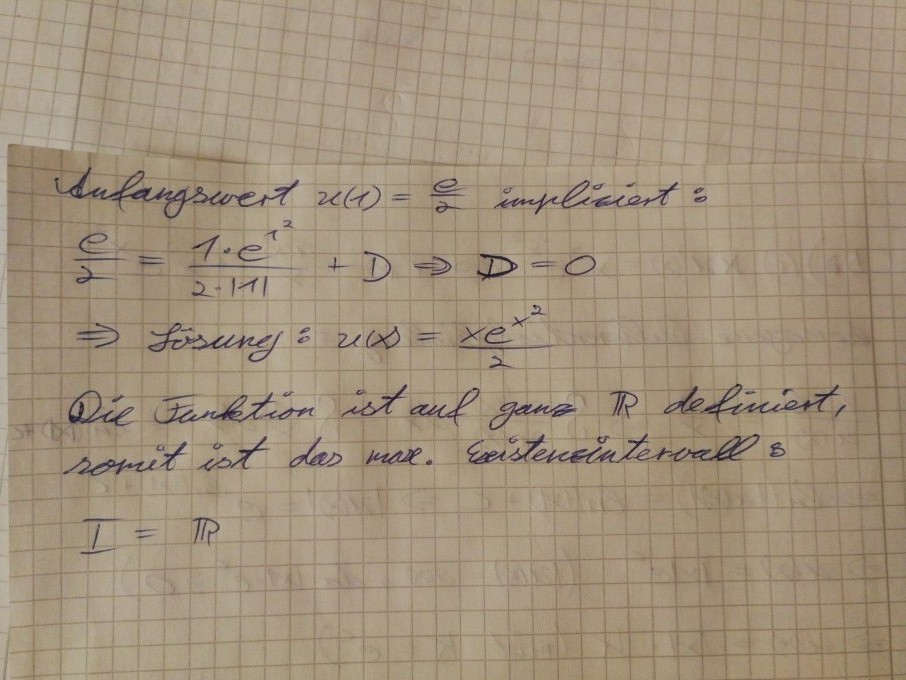 Anfangswert u(1) = e/2 impliziert :
e/2 = 1·e^1^2 / 2·|1| + D ⇒ D = 0
⇒ Lösung : u(x) = xe^x^2 / 2
Die Funktion ist auf ganz ℝ definiert,
somit ist das max. Existenzintervall :
I = ℝ